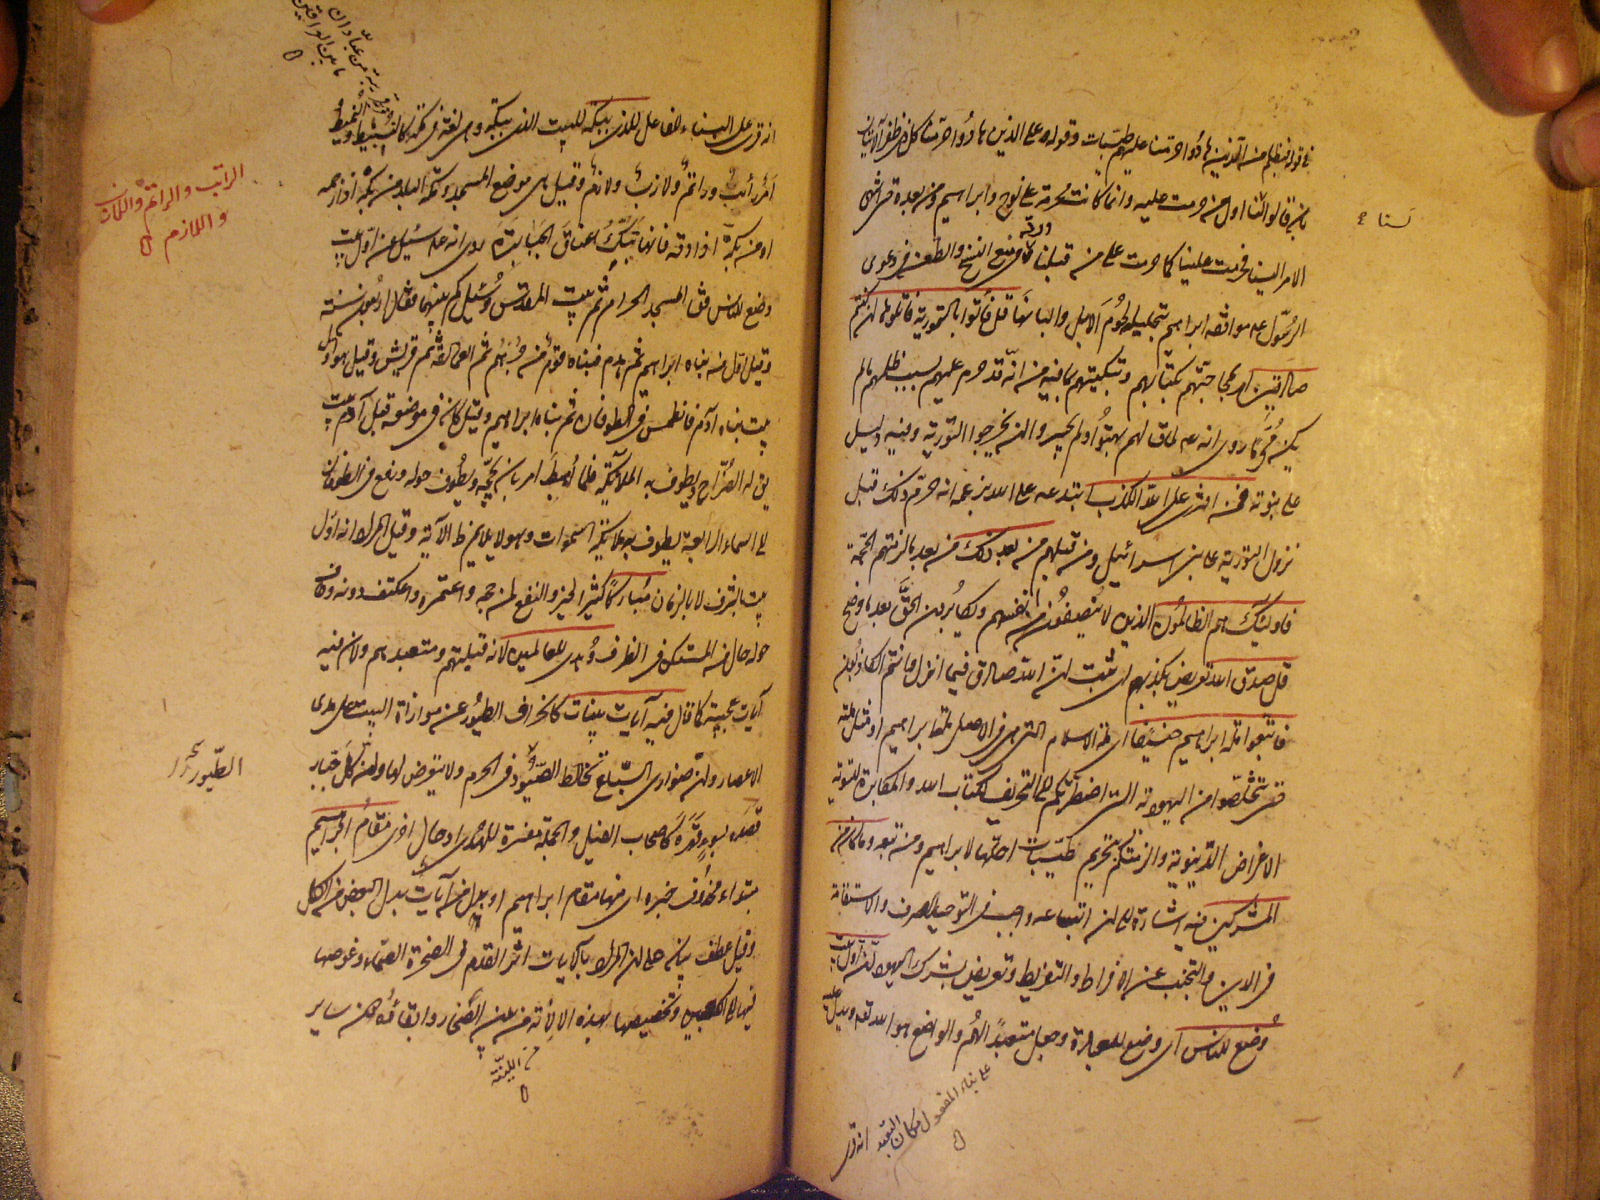 في قوله فبظلم من الذين هادوا حرمنا عليهم طيبات وقوله وعلى الذين هادوا حرمنا كل ذي ظفر الآيتان
بان قالوا لسنا اول من حرمت عليه وانما كانت محرمة على نوح وابراهيم ومن بعده حتى انتهى
لسنا
الامر الينا فحرمت علينا كما حرمت على من قبلنا وفي منع النسخ والطعن في دعوى
الرسول عم موافقة ابراهيم بتحليله لحوم الابل والبانها قل فأتوا بالتورية فاتلوها ان كنتم
صادقين امر بمحاجتهم بكتابهم وتبكيتهم بما فيه من انه قد حرم عليهم بسبب ظلمهم ما لم
يكن محرما روى انه عم لما قال لهم بهتوا ولم يجسروا ان يخرجوا التورية وفيه دليل
على نبوته فمن افترى على الله الكذب ابتدعه على الله بزعمه انه حرم ذلك قبل
نزول التورية على بني اسرائيل ومن قبلهم من بعد ذلك من بعد ما لزمتهم الحجة
فاولئك هم الظالمون الذين لا ينصفون من انفسهم ويكابرون الحق بعد ما وضح
قل صدق الله تعريض بكذبهم اي ثبت ان الله صادق فيما انزل وانتم الكاذبون
فاتبعوا ملة ابراهيم حنيفا اي ملة الاسلام التي هي في الاصل ملة ابراهيم او مثل ملته
حتى تتخلصوا من اليهودية التي اضطرتكم الى التحريف لكتاب الله والمكابرة لتسوية
الاغراض الدنيوية والزمتكم تحريم طيبات احلها لابراهيم ومن تبعه وما كان من
المشركين فيه اشارة الى ان اتباعه واجب في التوحيد الصرف والاستقامة
في الدين والتجنب عن الافراط والتفريط وتعريض بشرك اليهود ان اول بيت
وضع للناس اي وضع للعبادة وجعل متعبدا لهم والواضع هو الله تعه ويدل عليه
على بناء المفعول مكان التعبد
انه قرئ
قرية من عبادان
ما بين الواقفين
انه قرئ على البناء للفاعل للذي ببكة للبيت الذي ببكة وهي لغة في مكة كالنبيط والنميط
امر راتب وراتم ولازب ولازم وقيل هي موضع المسجد ومكة البلد من بكه اذا زحمه
الراتب والراتم واللازب
واللازم
او من بكه اذا دقه فانها تبك اعناق الجبابرة روى انه عم سئل عن اول بيت
وضع للناس فقال المسجد الحرام ثم بيت المقدس وسئل كم بينهما فقال اربعون سنة
وقيل اول من بناه ابراهيم ثم هدم فبناه قوم من جرهم ثم العمالقة ثم قريش وقيل هو اول
بيت بناه آدم فانطمس في الطوفان ثم بناه ابراهيم وقيل كان في موضعه قبل آدم بيت
يقال له الضراح ويطوف به الملائكة فلما اهبط امر بان يحجه ويطوف حوله ورفع في الطوفان
الى السماء الرابعة يطوف به ملائكة السموات وهو لا يلايم ظ الآية وقيل المراد انه اول
بيت بالشرف لا بالزمان مباركا كثير الخير والنفع لمن حجه واعتمره واعتكف دونه وطاف
حوله حال من المستكن في الظرف وهدى للعالمين لانه قبلتهم ومتعبدهم ولان فيه
آيات عجيبة كما قال فيه آيات بينات كانحراف الطيور عن موازاة البيت على مدى
الطيور
الاعصار وان ضواري السباع تخالط الصيود في الحرم ولا يتعرض لها وان كل جبار
قصده بسوء قهره كاصحاب الفيل والجملة مفسرة للهدى او حال اخرى مقام ابراهيم
مبتداء محذوف خبره اي منها مقام ابراهيم او بدل من آيات بدل البعض من الكل
وقيل عطف بيان على ان المراد بالآيات اثر القدم في الصخرة الصماء وغوصها
فيها الى الكعبين وتخصيصها بهذه الالانة من بين الصخار وابقاؤه دون ساير